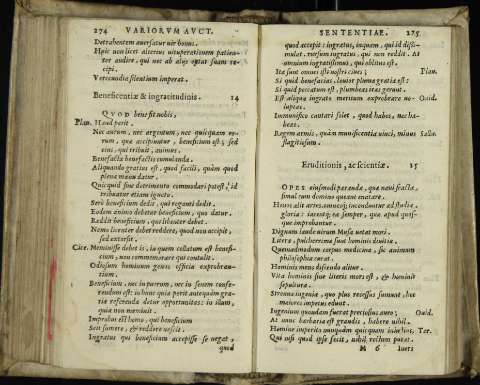 274 VARIORVM AVCT.
Detrahentem auersatur vir bonus.
Huic non licet alterius vituperationem patien-
ter audire, qui nec ab aliis optat suam re-
cipi.
Verecundia silentium imperat.
Beneficentiæ & ingratitudinis. 14
QVOD benefit nobis,
Plau. Haud perit.
Nec aurum, nec argentum, nec quicquam eo-
rum, quæ accipiuntur, beneficium est; sed
eius, qui tribuit, animus.
Benefacta benefactis cumulanda.
Aliquando gratius est, quod facili, quàm quod
plena manu datur.
Quicquid sine detrimento commodari potest, id
tribuatur etiam ignoto.
Serò beneficium dedit, qui roganti dedit.
Eodem animo debetur beneficium, quo datur.
Reddit beneficium, qui libenter debet.
Nemo licenter debet reddere, quod non accipit,
sed extorsit.
Cice. Meminisse debet is, in quem collatum est benefi-
cium, non commemorare qui contulit.
Odiosum hominum genus officia exprobran-
tium.
Beneficium, nec in puerum, nec in senem confe-
rendum est: in hunc quia perit antequàm gra-
tiæ referendæ detur opportunitas: in illum,
quia non meminit.
Improbus est homo, qui beneficium
Scit sumere, & reddere nescit.
Ingratus qui beneficium accepisse se negat,
quod
SENTENTIAE. 275
quod accepit: ingratus, inquam, qui id dissi-
mulat. rursum ingratus, qui non reddit. At
omnium ingratissimus, qui oblitus est.
Ita sunt omnes isti nostri ciues; Plau.
Si quid benefacias, leuior pluma gratia est:
Si quid peccatum est, plumbeas iras gerunt.
Est aliqua ingrato meritum exprobrare vo- Ouid.
luptas.
Immunifico cantari solet, quod habes, nec ha-
beas.
Regem armis, quàm munificentia vinci, minus Sallu.
flagitiosum.
Eruditionis, ac scientiæ. 15
OPES eiusmodi parandæ, quæ naui fracta,
simul cum domino queant enatare.
Honos alit artes, omnesq; incenduntur ad studia
gloria: iacentq; ea semper, quæ apud quos-
que improbantur.
Dignum laude virum Musa vetat mori.
Literæ, pulcherrimæ sunt hominis diuitiæ.
Quemadmodum corpus medicina, sic animum
philosophia curat.
Hominis mens discendo alitur.
Vita hominis sine literis mors est, & hominis
sepultura.
Strenua ingenia, quo plus recessus sumunt, hoc
maiores impetus edunt.
Ingenium quondam fuerat pretiosius auro; Ouid.
At nunc barbaria est grandis, habere nihil.
Homine imperito nunquàm quicquam iniustius, Ter.
Qui nisi quod ipse fecit, nihil rectum putat.
M 6 Iueri